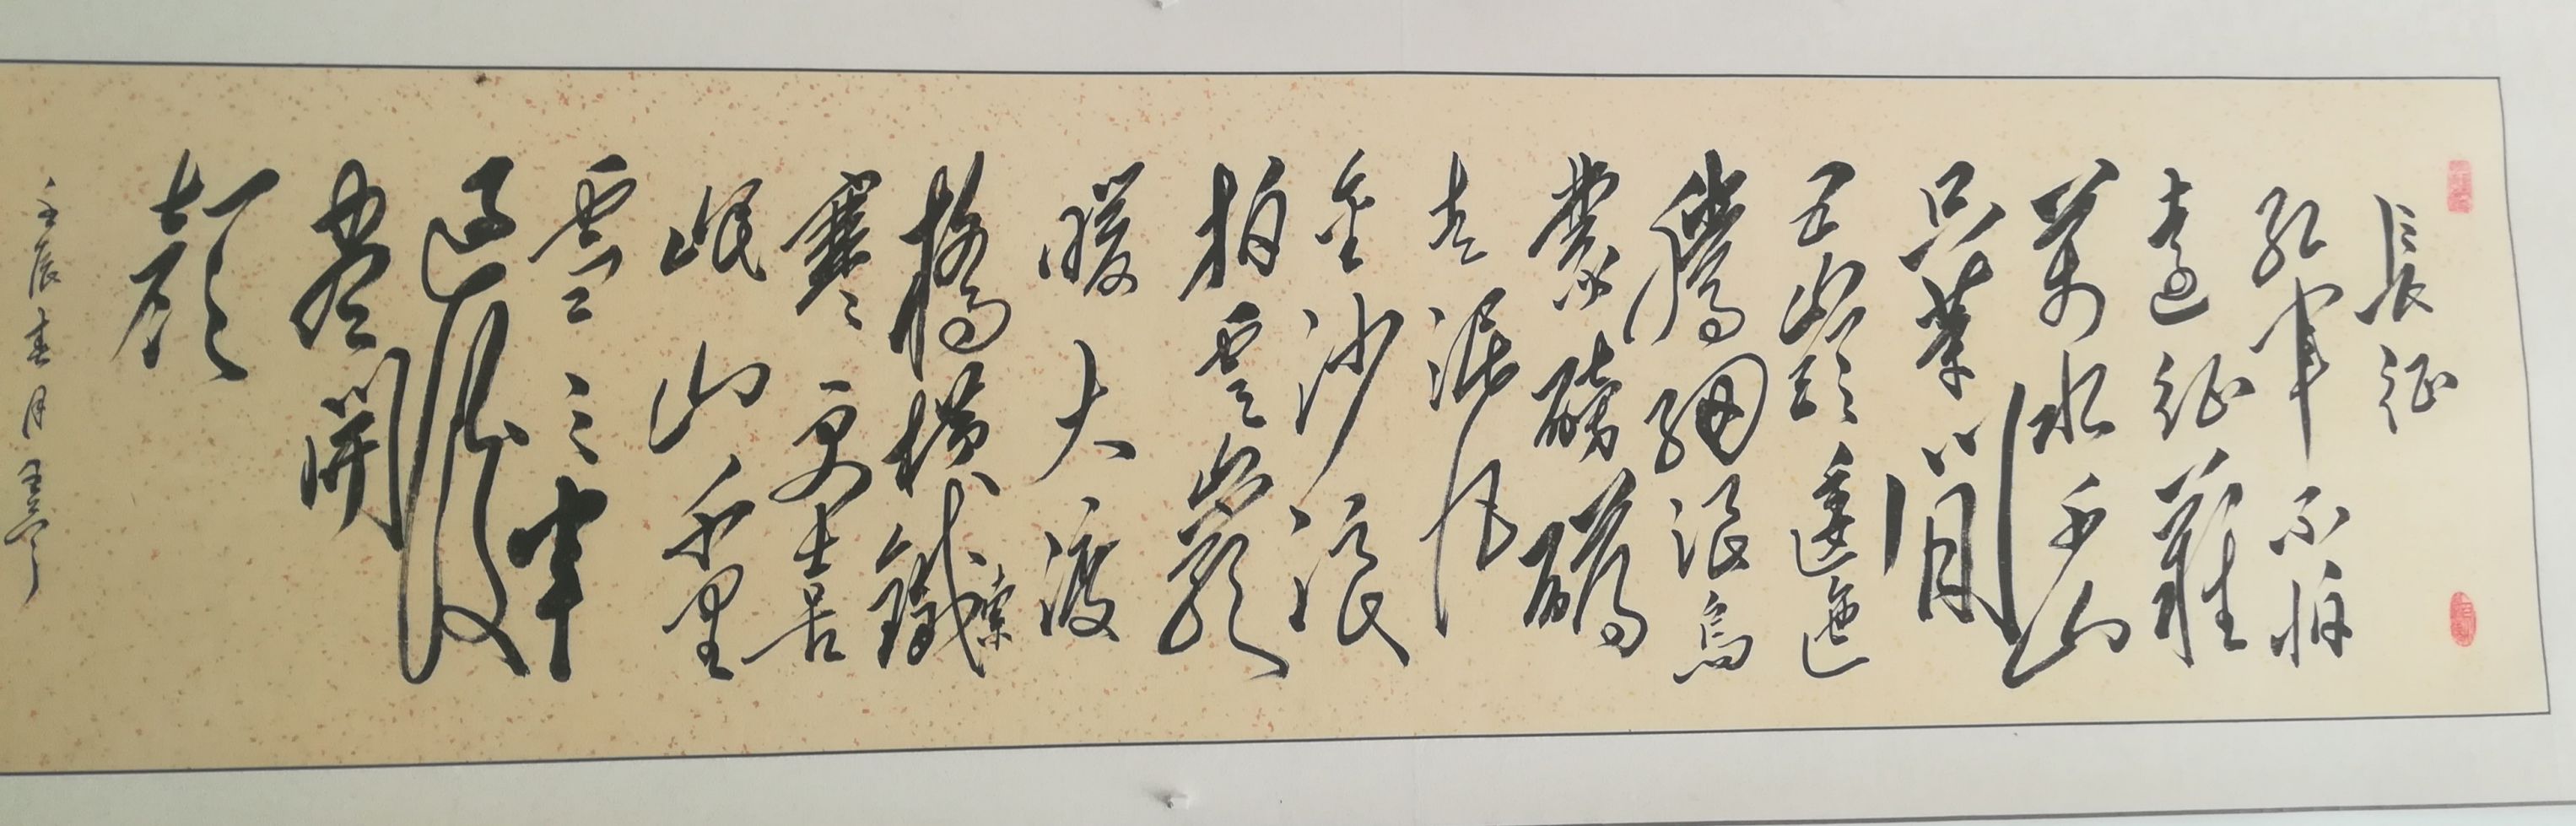 長征
紅軍不怕
遠征難
萬水千山
只等閒
五嶺逶迤
騰細浪烏
蒙磅礴
走泥丸
金沙浪
拍雲崖
暖大渡
橋橫鐵索
寒更喜
岷山千里
雪三軍
過後
盡開
顏
壬辰春月